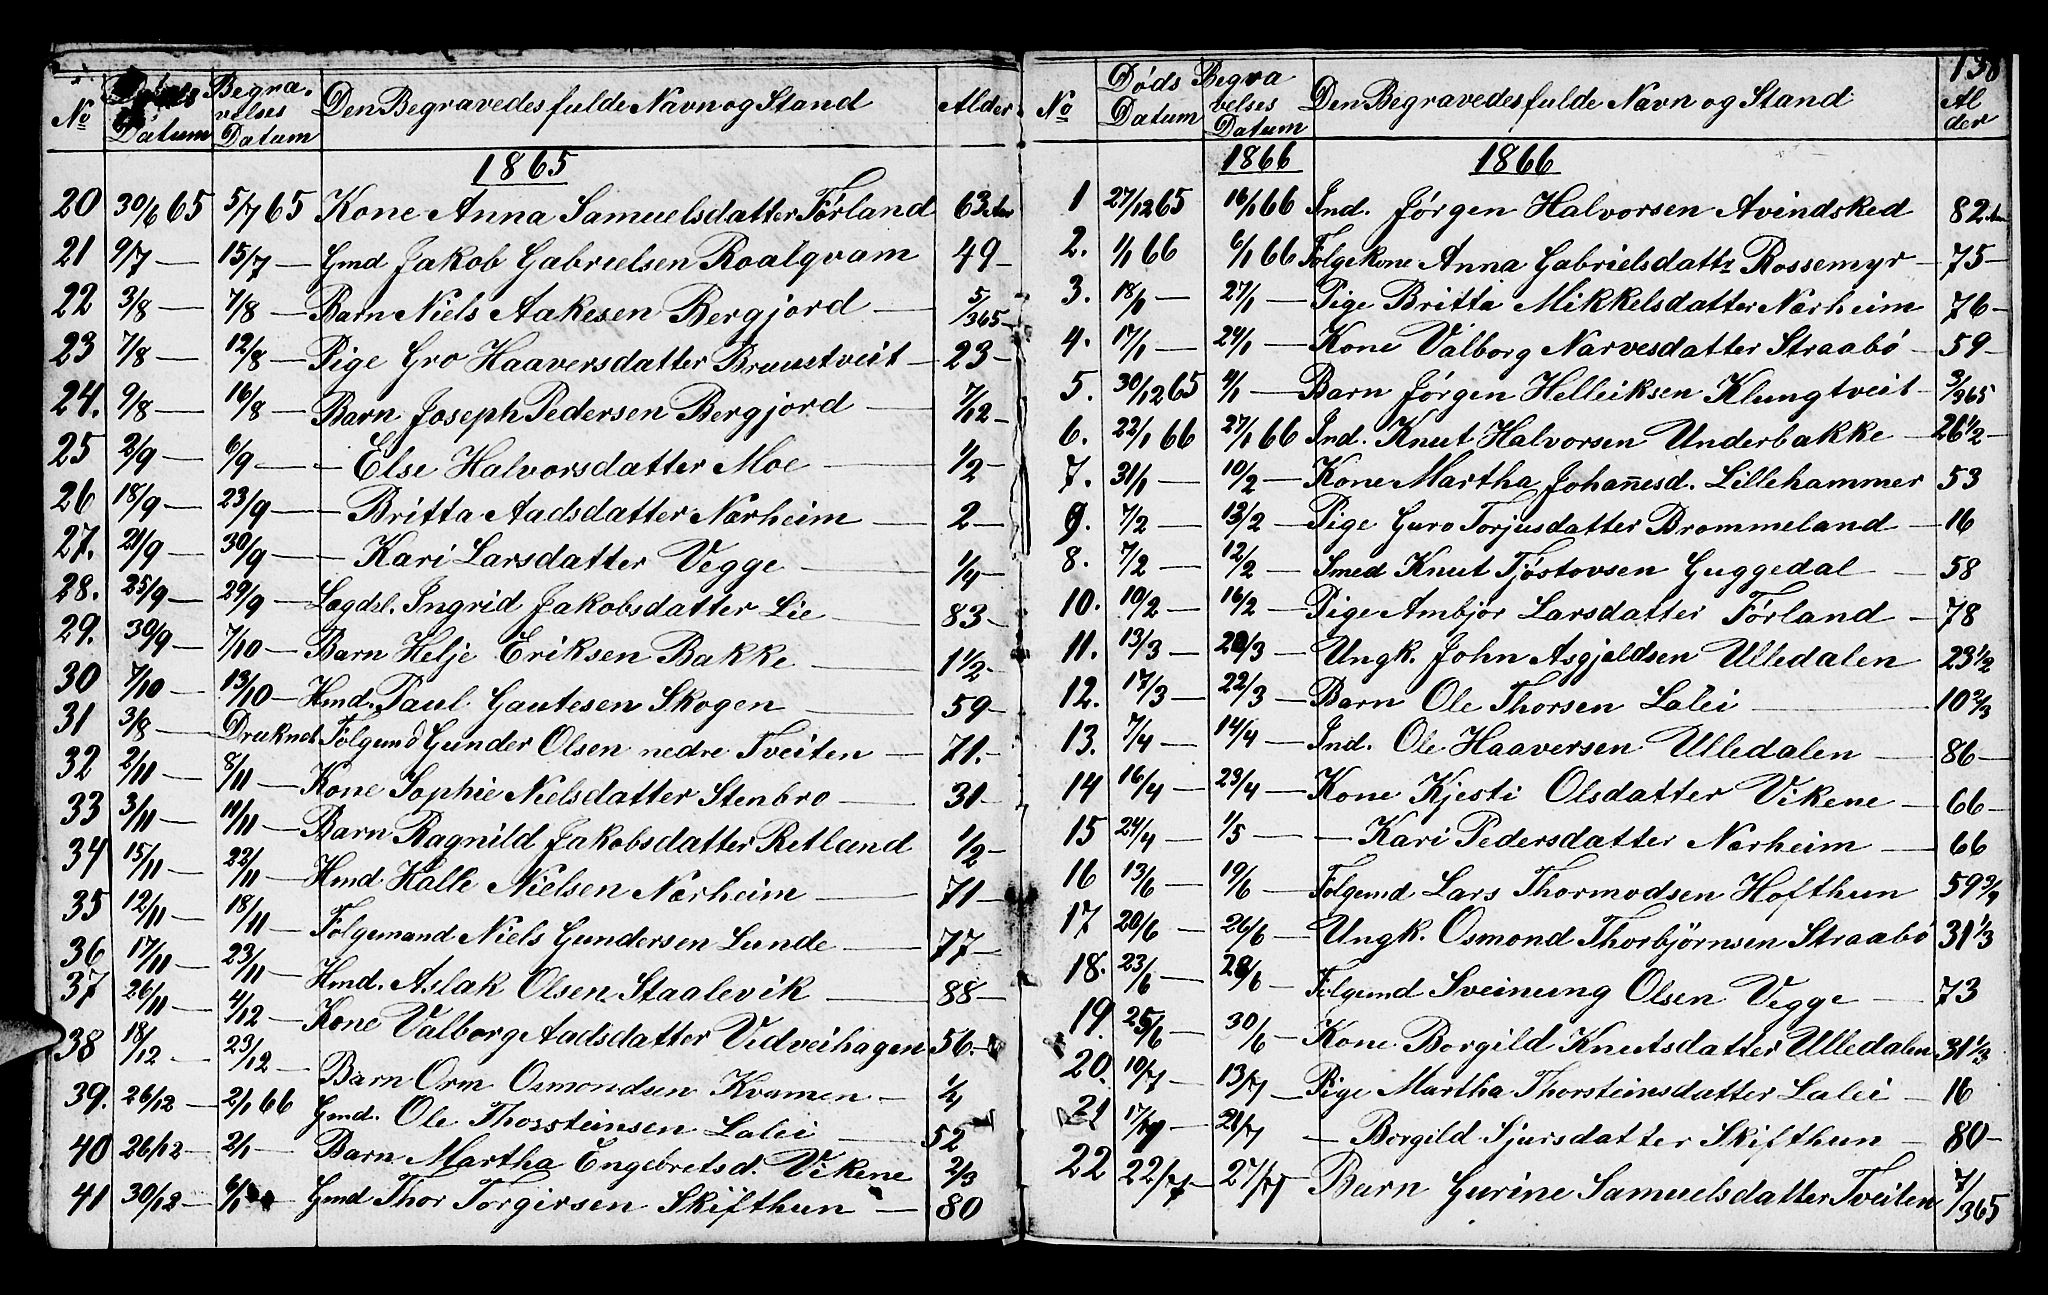 No Døds Datum Begravelses Datum Den Begravedes fulde Navn og Stand Alder
1865
20 30/6 65 5/7 65 Kone Anna Samuelsdatter Förland 63 Aar
21 9/7 — 15/7 — Gmd Jakob Gabrielsen Roalqvam 49 —
22 3/8 — 7/8 — Barn Niels Aakesen Bergjord — 5/365 —
23 7/8 — 12/8 — Pige Gro Haaversdatter Bruustveit — 23 —
24. 9/8 — 16/8 — Barn Joseph Pedersen Bergjord — 7/12 —
25 2/9 — 6/9 — — Else Halvorsdatter Moe — 1/2 —
26 18/9 — 23/9 — — Britta Aadsdatter Nærheim — 2 —
27. 21/9 — 30/9 — — Kari Larsdatter Vegge — 1/4 —
28. 25/9 — 29/9 — Lægdsl. Ingrid Jakobsdatter Lie — 83 —
29. 30/9 — 7/10 — Barn Helje Eriksen Bakke — 1 1/2 —
30 7/10 — 13/10 — Hmd. Paul Gautesen Skogen — 59 —
31 3/8 — Druknet Følgemd Gunder Olsen nedre Tveiten — 71. —
32 2/11 — 8/11 — Kone Sophie Nielsdatter Stenbro — 31 —
33 3/11 — 11/11 — Barn Ragnild Jakobsdatter Retland 1/2 —
34 15/11 — 22/11 — Hmd Kalle Nielsen Nærheim — 71 —
35 12/11 — 18/11 — Følgemand Niels Gundersen Lunde — 77 —
36 17/11 — 23/11 — Hmd. Aslak Olsen Staalevik — 88 —
37 26/11 — 4/12 — Kone Valborg Aadsdatter Vedveihagen 56. —
38 18/12 — 23/12 — Barn Orm Osmondsen Kvamen — 1/4
39. 26/12 — 2/1 66 Gmd. Ole Thorsteinsen Lalei — 52
40 26/12 — 2/1 — Barn Martha Engebretsd. Vikene 2/3
41 30/12 — 6/1 — Gmd Thor Torgirsen Skifthun — 80
138
No Døds Datum Begravelses Datum Den Begravedes fulde Navn og Stand Alder
1866 1866
1 27/12 65 16/1 66 Ind. Jørgen Halvorsen Avindsked 82 Aar
2. 1/1 66 6/1 66 Følgekone Anna Gabrielsdattr Rossemyr — 75 —
3. 18/1 — 27/1 — Pige Britta Mikkelsdatter Nærheim 76 —
4. 17/1 — 24/1 — Kone Valborg Narvesdatter Straabö — 59 —
5. 30/12 65 4/1 — Barn Jørgen Helleiksen Klungtveit — 3/365
6. 22/1 66 27/1 66 Ind. Knut Halvorsen Underbakke — 26 1/2 —
7. 31/1 — 10/2 — Kone Martha Johan̄esd. Lillehammer 53
9. 7/2 — 13/2 — Pige Guro Torjusdatter Brommeland — 16
8. 7/2 — 12/2 — Smed Knut Tjøstovsen Guggedal — 58
10. 10/2 — 16/2 — Pige Ambjør Larsdatter Förland — 78
11. 13/3 — 20/3 — Ungk. John Asgjeldsen Ulledalen 23 1/2
12. 17/3 — 22/3 — Barn Ole Thorsen Lalei — 10 2/3
13. 7/4 — 14/4 — Ind. Ole Haaversen Ulledalen — 86 —
14 16/4 — 23/4 — Kone Kjesti Olsdatter Vikene — 66 —
15 24/4 — 1/5 — — Kari Pedersdatter Nærheim — 66
16 13/6 — 19/6 — Følgemd Lars Thormodsen Hofthun 59 3/4
17 20/6 — 26/6 — Ungk. Osmond Thorbjörnsen Straabö 31 1/3
18. 23/6 — 28/6 — Følgemd Sveinung Olsen Vegge — 73
19. 25/6 — 30/6 — Kone Borgild Knutsdatter Ulledalen 31 1/3
20. 10/7 — 13/7 — Pige Martha Thorsteinsdatter Lalei — 16
21 17/7 — 21/7 — Borgild Sjursdatter Skifthun — 80 —
22 22/7 — 27/7 Barn Gurine Samuelsdatter Tveiten 7/365